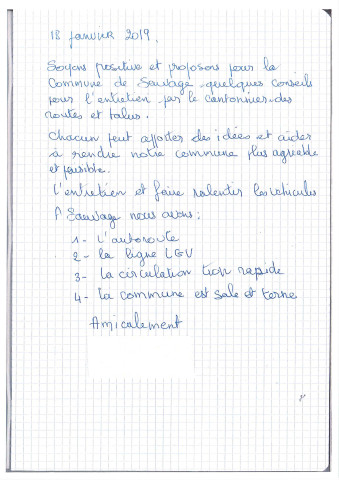 18 janvier 2019.
Soyons positive et proposons pour la
Commune de Sauvage quelques conseils
pour l'entretien par le cantonnier des
routes et talus.
Chacun peut apporter des idées et aider
à rendre notre commune plus agréable
et paisible.
L'entretien et faire ralentir les véhicules
A Sauvage nous avons :
1- L'autoroute
2- la ligne LGV
3- La circulation trop rapide
4- La commune est sale et terne
Amicalement